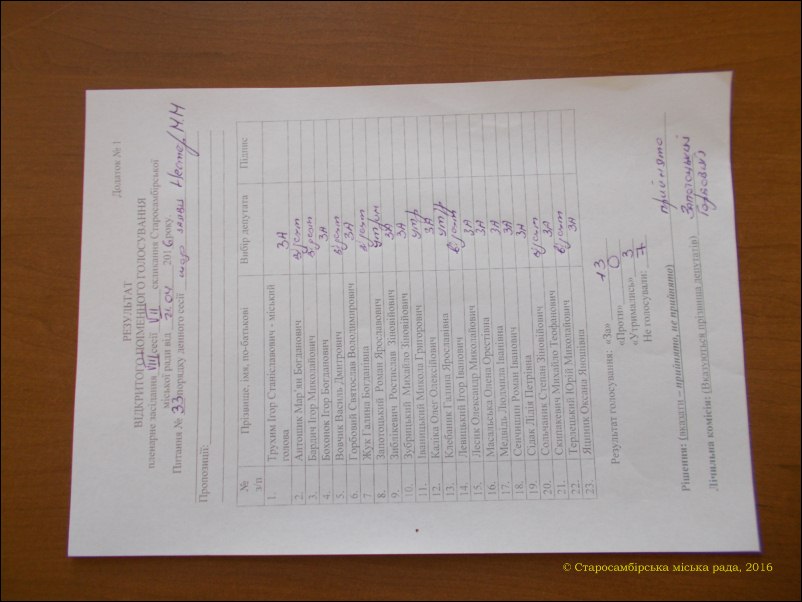 Додаток № 1
РЕЗУЛЬТАТ
ВІДКРИТОГО ПОІМЕННОГО ГОЛОСУВАННЯ
пленарне засідання VIII сесії VII скликання Старосамбірської
міської ради від 21.04 2016 року,
Питання № 33 порядку денного сесії щодо заяви Нестор М.М
Пропозиції:
№ з/п Прізвище, імя, по-батькові Вибір депутата Підпис
1. Трухим Ігор Станіславович - міський голова ЗА
2. Антошик Мар'ян Богданович в/сут
3. Бардич Ігор Миколайович в/сут
4. Бохонок Ігор Богданович ЗА
5. Вовчик Василь Дмитрович в/сут
6. Горбовий Святослав Володимирович ЗА
7 Жук Галина Богданівна в/сут
8. Запотоцький Роман Ярославович утрим
9. Зиблікевич Ростислав Зіновійович ЗА
10. Зубрицький Михайло Зіновійович ЗА
11. Іваницький Микола Григорович утр
12. Каліка Олег Олегович ЗА
13. Клебанюк Галина Ярославівна утр
14. Левицький Ігор Іванович в/сут
15. Лесик Олександр Миколайович ЗА
16. Масальська Олена Орестівна ЗА
17. Медвідь Людмила Іванівна ЗА
18. Сеничишин Роман Іванович ЗА
19. Сидик Лідія Петрівна ЗА
20. Сольчаник Степан Зіновійович в/сут
21. Скишкевич Михайло Теофанович ЗА
22 Терлецький Юрій Миколайович в/сут
23 Яцишин Оксана Яношівна ЗА
Результат голосування: «За» 13
«Проти» 0
«Утримались» 3
Не голосували: 7
Рішення: (вказати – прийнято, не прийнято) прийнято
Лічильна комісія: (Вказуються прізвища депутатів) Запотоцький
Горбовий
© Старосамбірська міська рада, 2016